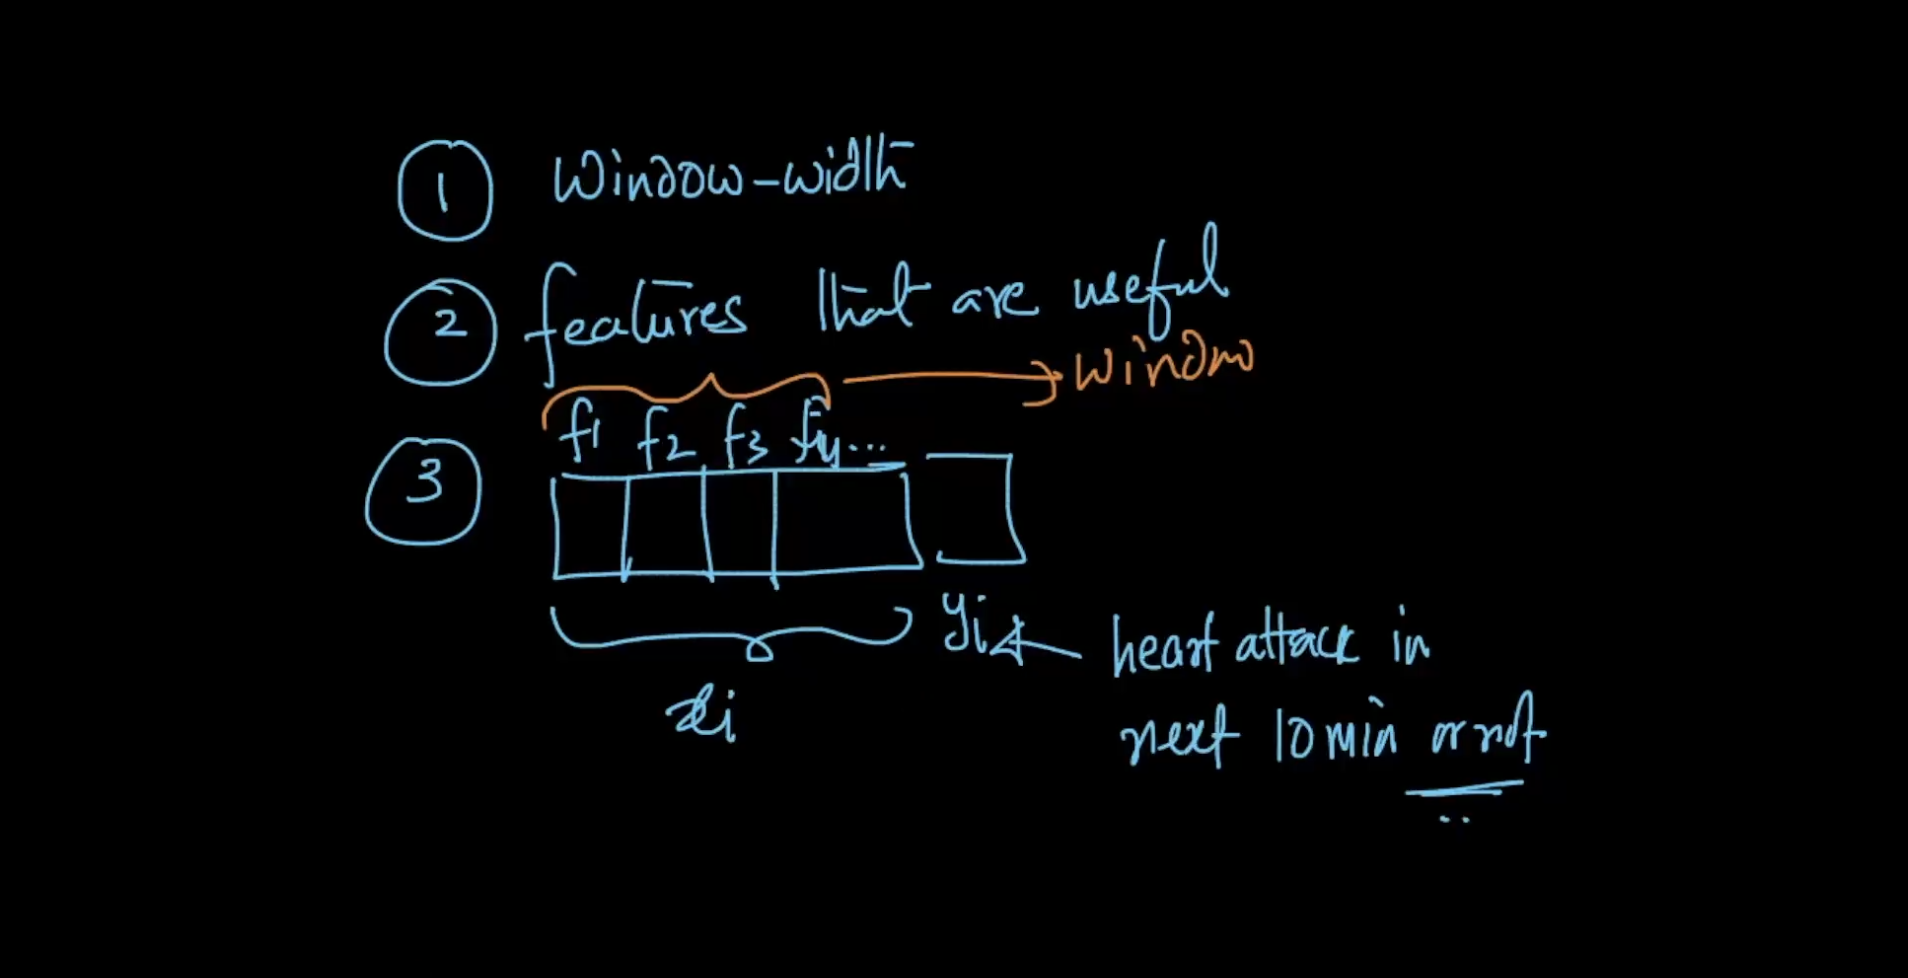 1 Window-width
2 features that are useful
window
f1 f2 f3 f4...
3
yi heart attack in
next 10 min or not
xi